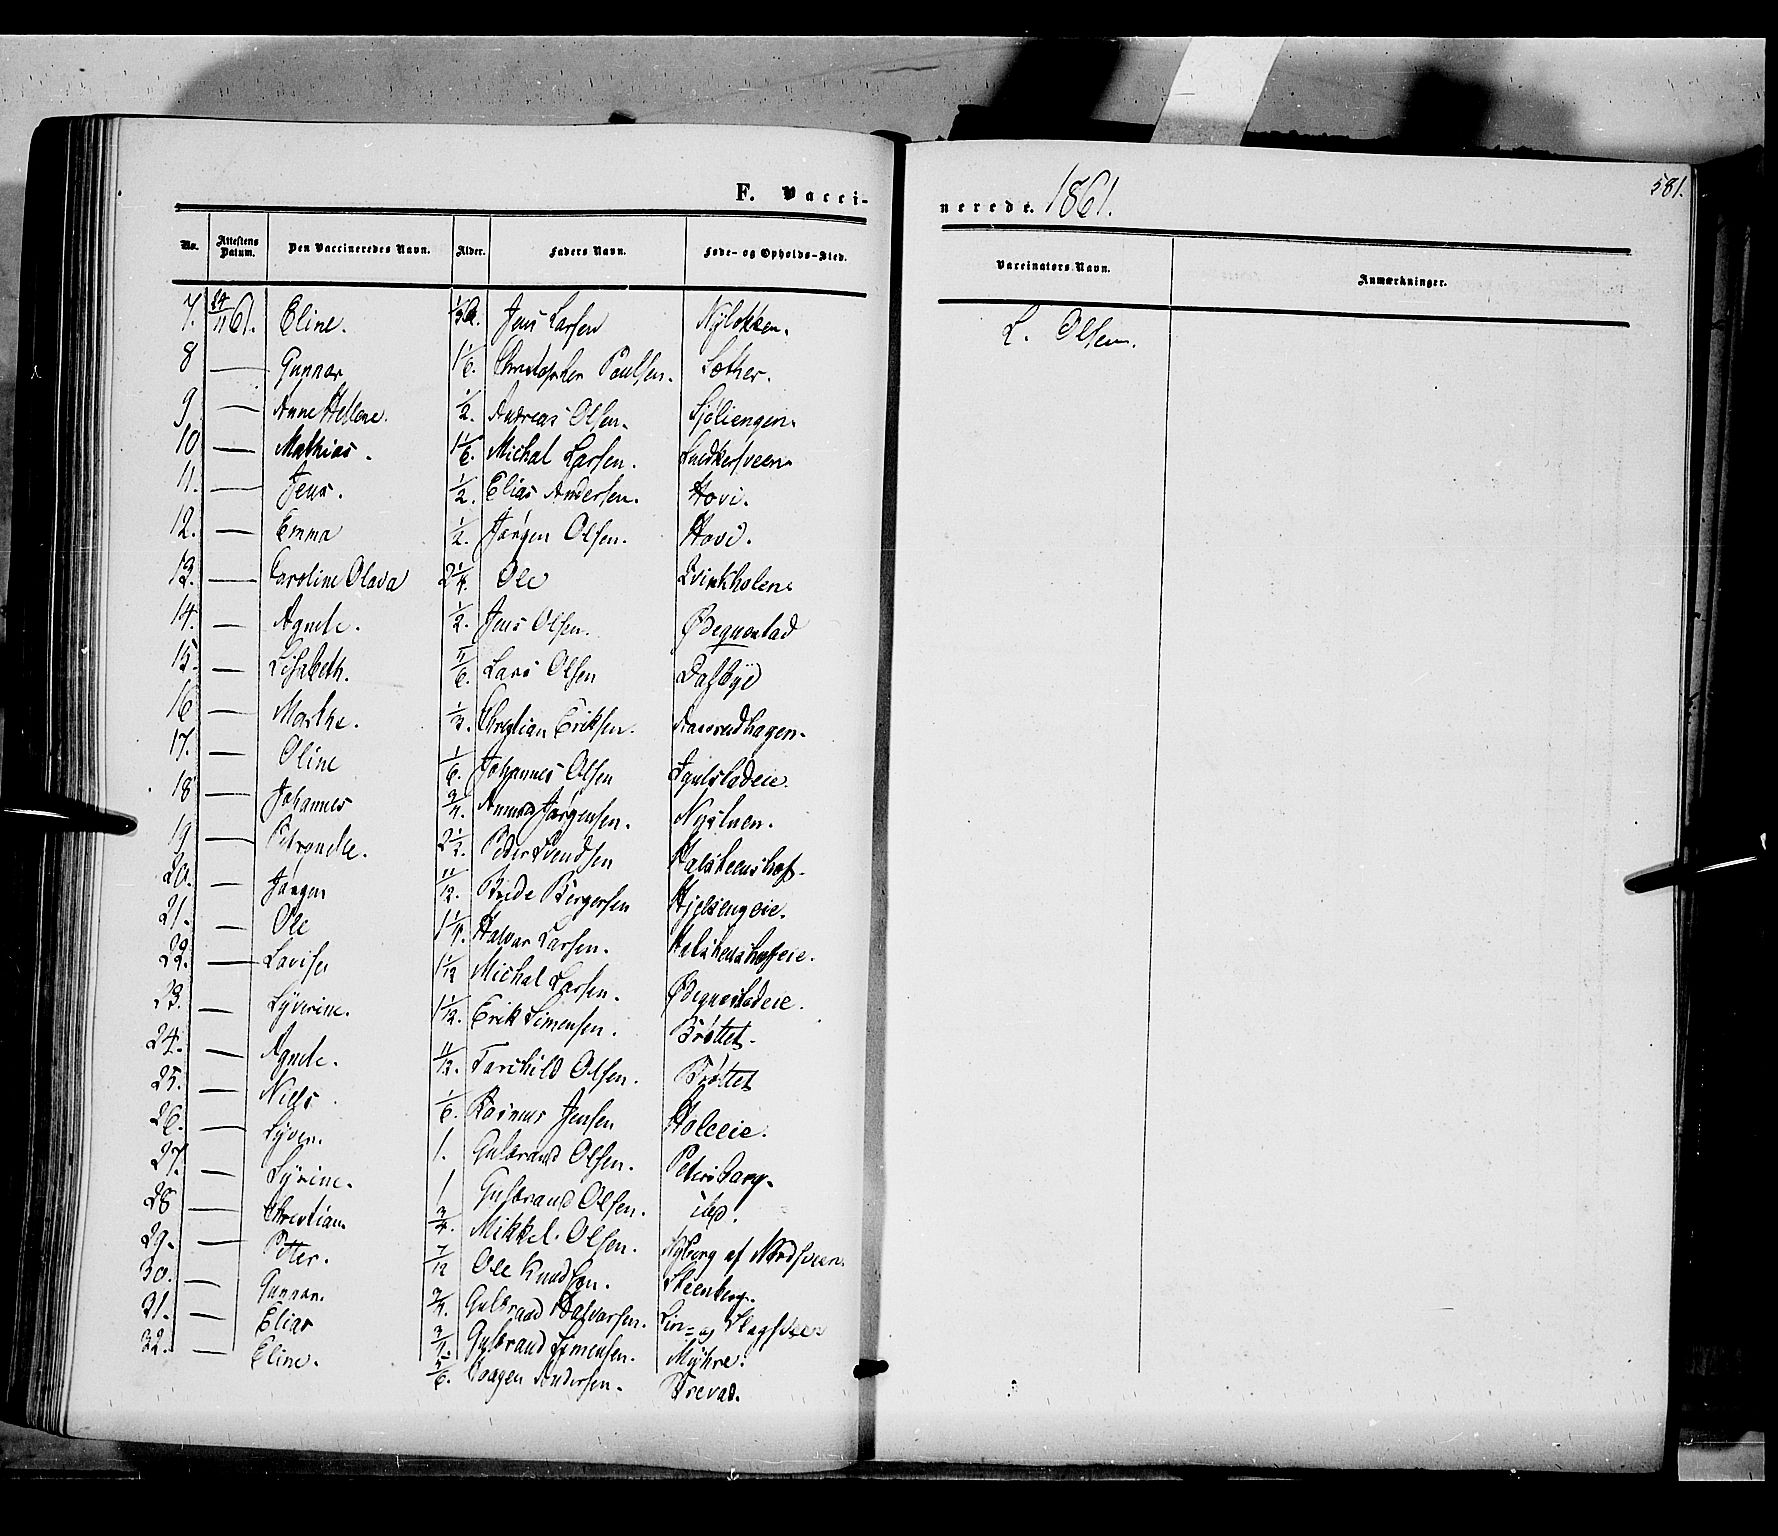 F. Vacci-
nerede. 1861.
581.
No. Attestens Datum. Den Vaccineredes Navn. Alder. Faders Navn. Føde- og Opholds-Sted. Vaccinators Navn. Anmærkninger.
7. 24/11 61. Eline. Jens Larsen Nyløkken. L. Olsen.
8 — Gunnar 1 1/6. Christopher Paulsen. Sæther.
9 — Anne Hellene. 1/2. Andreas Olsen. Sjøliengen.
10 — Mathias. 1 1/6. Michal Larsen. Snedkersveen
11. — Jens. 1/2. Elias Andersen. Hovi.
12. — Emma 1/2. Jørgen Olsen. Hovi.
13. — Caroline Olava 2 1/4. Ole Qvinkholen.
14. — Agnete. 1/2. Jens Olsen. Ødegnestad
15. — Lisabeth. 5/6. Lars Olsen Dalbye
16 — Marthe. Christian Eriksen.
17. — Oline 1/6. Johannes Olsen
18 — Johannes 3/4. Amund Jørgensen. Nystuen.
19 — Petronelle. 2 1/2. Peder Svendsen
20. — Jørgen 11/12. Brede Børgersen Hjelsengeie.
21. — Ole 1 1/4. Halvor Larsen.
22. — Lovise 1 1/12 Michal Larsen. Ødegnestadeie.
23. — Syverine. 1 1/12. Erik Simensen. Brøttet.
24. — Agnete. 11/12. Tarkild Olsen. Brøttet
25. — Niels. 1/6. Rasmus Jensen Holeeie.
26. — Syver. 1. Gulbrand Olsen. Petersborg.
27. — Syrine. 1 Gulbrand Olsen. ibd.
28 — Christian. 3/4. Mikkel Olsen. Nyborg af Nordsveen.
29. — Petter. 7/12 Ole Knudsen. Steenberg.
30. — Gunnar. 3/4. Gulbrand Halvorsen.
31. — Elias 3/4. Gulbrand Simensen. Myhre.
32. — Eline. 5/6. Andersen. Brevad.